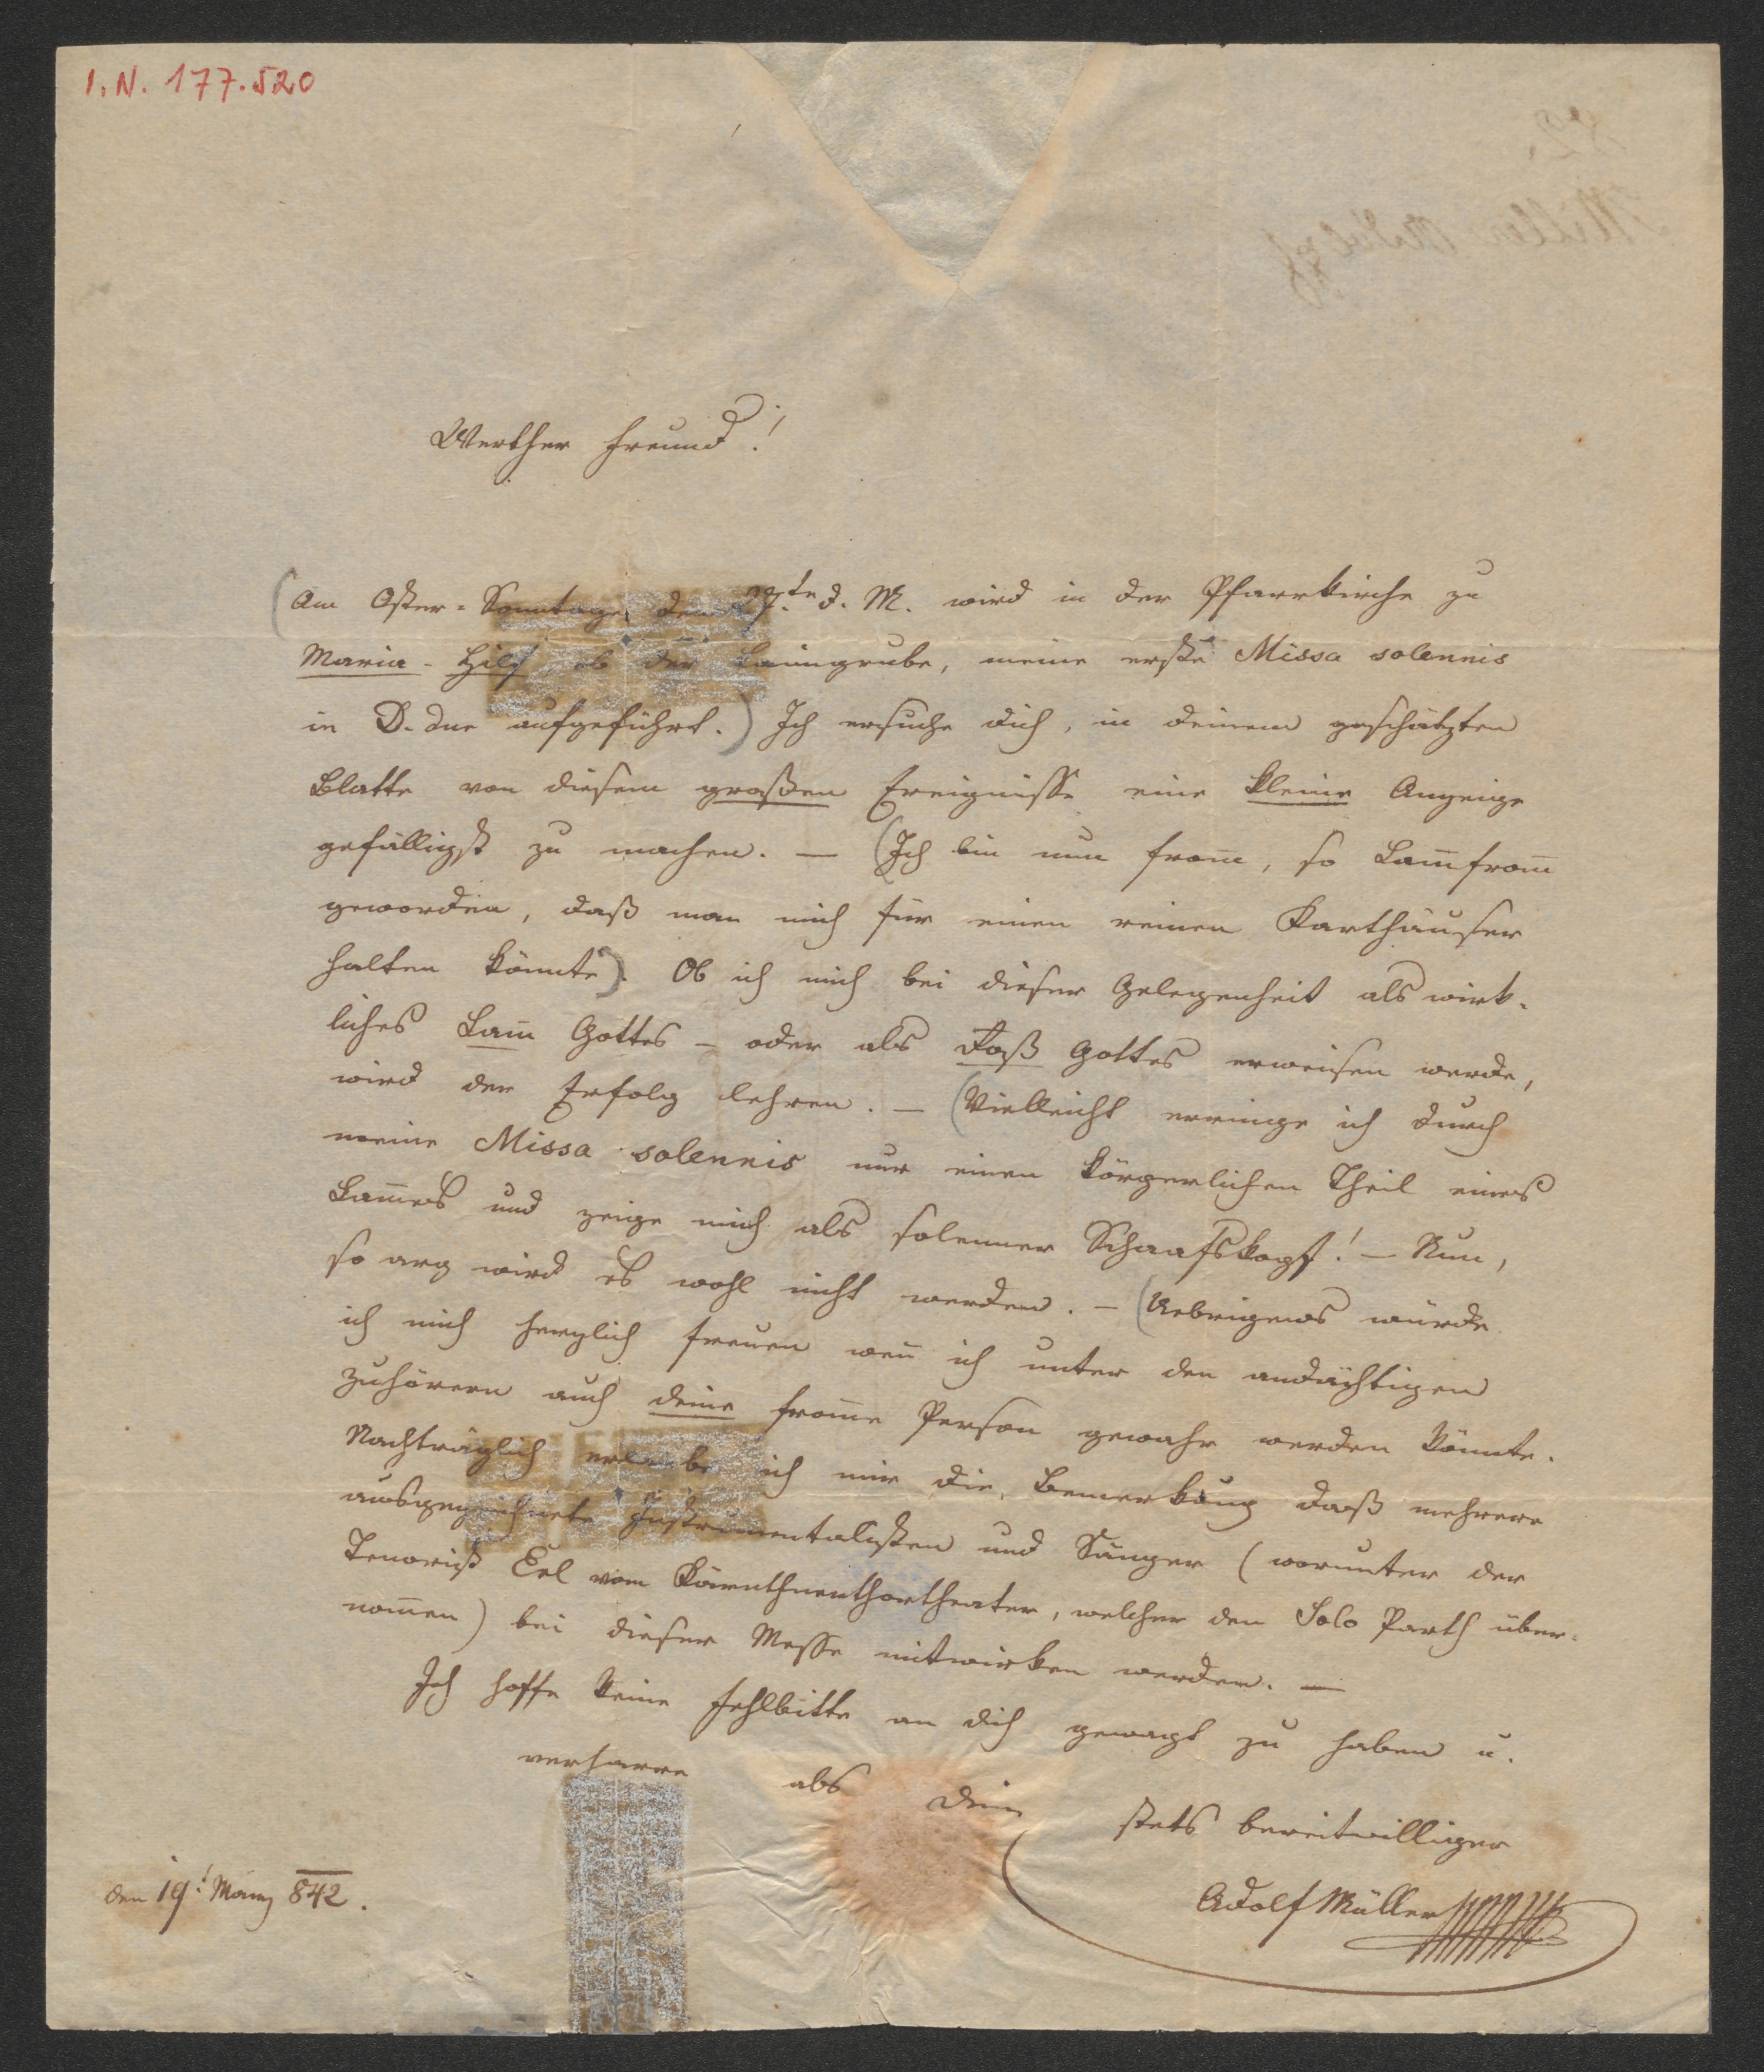 I. N. 177.520
Werther Freund!
(Am Oster-Sonntage den 27.ten d. M. wird in der Pfarrkirche zu
Maria-Hilf ob der Laimgrube, meine erste Missa solennis
in D-dur aufgeführt.) Ich ersuche dich, in deinem geschätzten
Blatte von diesem großen Ereignisse eine kleine Anzeige
gefälligst zu machen. — (Ich bin nun from̅, so Lam̅from̅
geworden, daß man mich für einen reinen Karthäuser
halten könnte). Ob ich mich bei dieser Gelegenheit als wirk-
liches Lam̅ Gottes – oder als Faß Gottes erweisen werde,
wird der Erfolg lehren. — (Vielleicht erringe ich durch
meine Missa solennis nur einen körperlichen Theil eines
Lam̅es und zeige mich als solenner Schaafskopf! – Nun,
so arg wird es wohl nicht werden. – (Uebrigens würde
ich mich herzlich freuen wen̅ ich unter den andächtigen
Zuhörern auch deine from̅e Person gewahr werden könnte.
Nachträglich erlaube ich mir die Bemerkung daß mehrere
ausgezeichnete Instrumentalisten und Sänger (worunter der
Tenorist Erl vom Kärnthnerthortheater, welcher den Solo Parth über-
nom̅en) bei dieser Messe mitwirken werden. —
Ich hoffe keine Fehlbitte an dich gewagt zu haben u.
verharre als Dein
stets bereitwilliger
Adolf Müller
den 19! März 842.